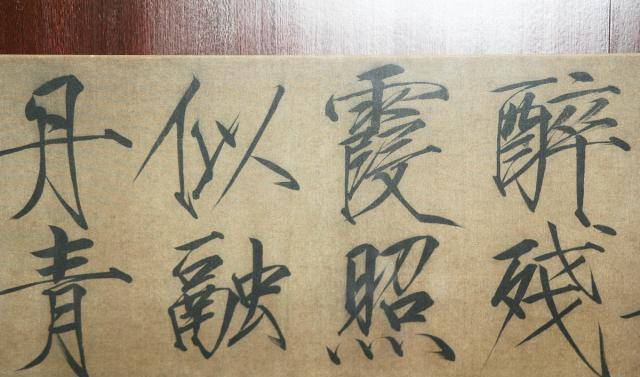 醉殘
霞照
似融
丹青